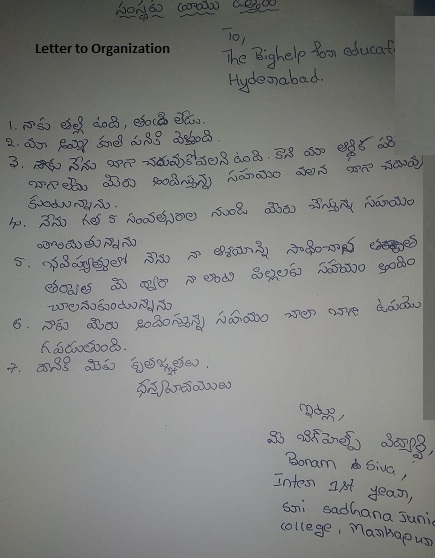 సంస్థకు రాయు ఉత్తరం
Letter to Organization
To,
The Bighelp for educat
Hyderabad.
1. నాకు తల్లి ఉంది, తండ్రి లేడు.
2. మా అమ్మ కూలి పనికి వెళ్తుంది.
3. నాకు నేను బాగా చదువుకోవాలని ఉంది. కాని మా ఆర్థిక పరి
బాగాలేదు మీరు అందిస్తున్న సహాయం వలన బాగా చదువు
కుంటున్నాను.
4. నేను గత 5 సంవత్సరాల నుండి మీరు చేస్తున్న సహాయం
పొందుతున్నాను
5. భవిష్యత్తులో నేను నా ఆశయాన్ని సాధించిన
తర్వాత మీ ద్వారా నా లాంటి పిల్లలకు సహాయం
చూలనుకుంటున్నాను
6. నాకు మీరు అందిస్తున్న సహాయం చాలా బాగా ఉపయో
గపడుతుంది.
7. దానికి మీకు కృతజ్ఞతలు.
ధన్యవాదములు
ఇట్లు,
మీ బిగ్‌హెల్ప్ విద్యార్థి,
Bonam Siva,
Inter 1st year,
Sri sadhana Juni
college, Markapur